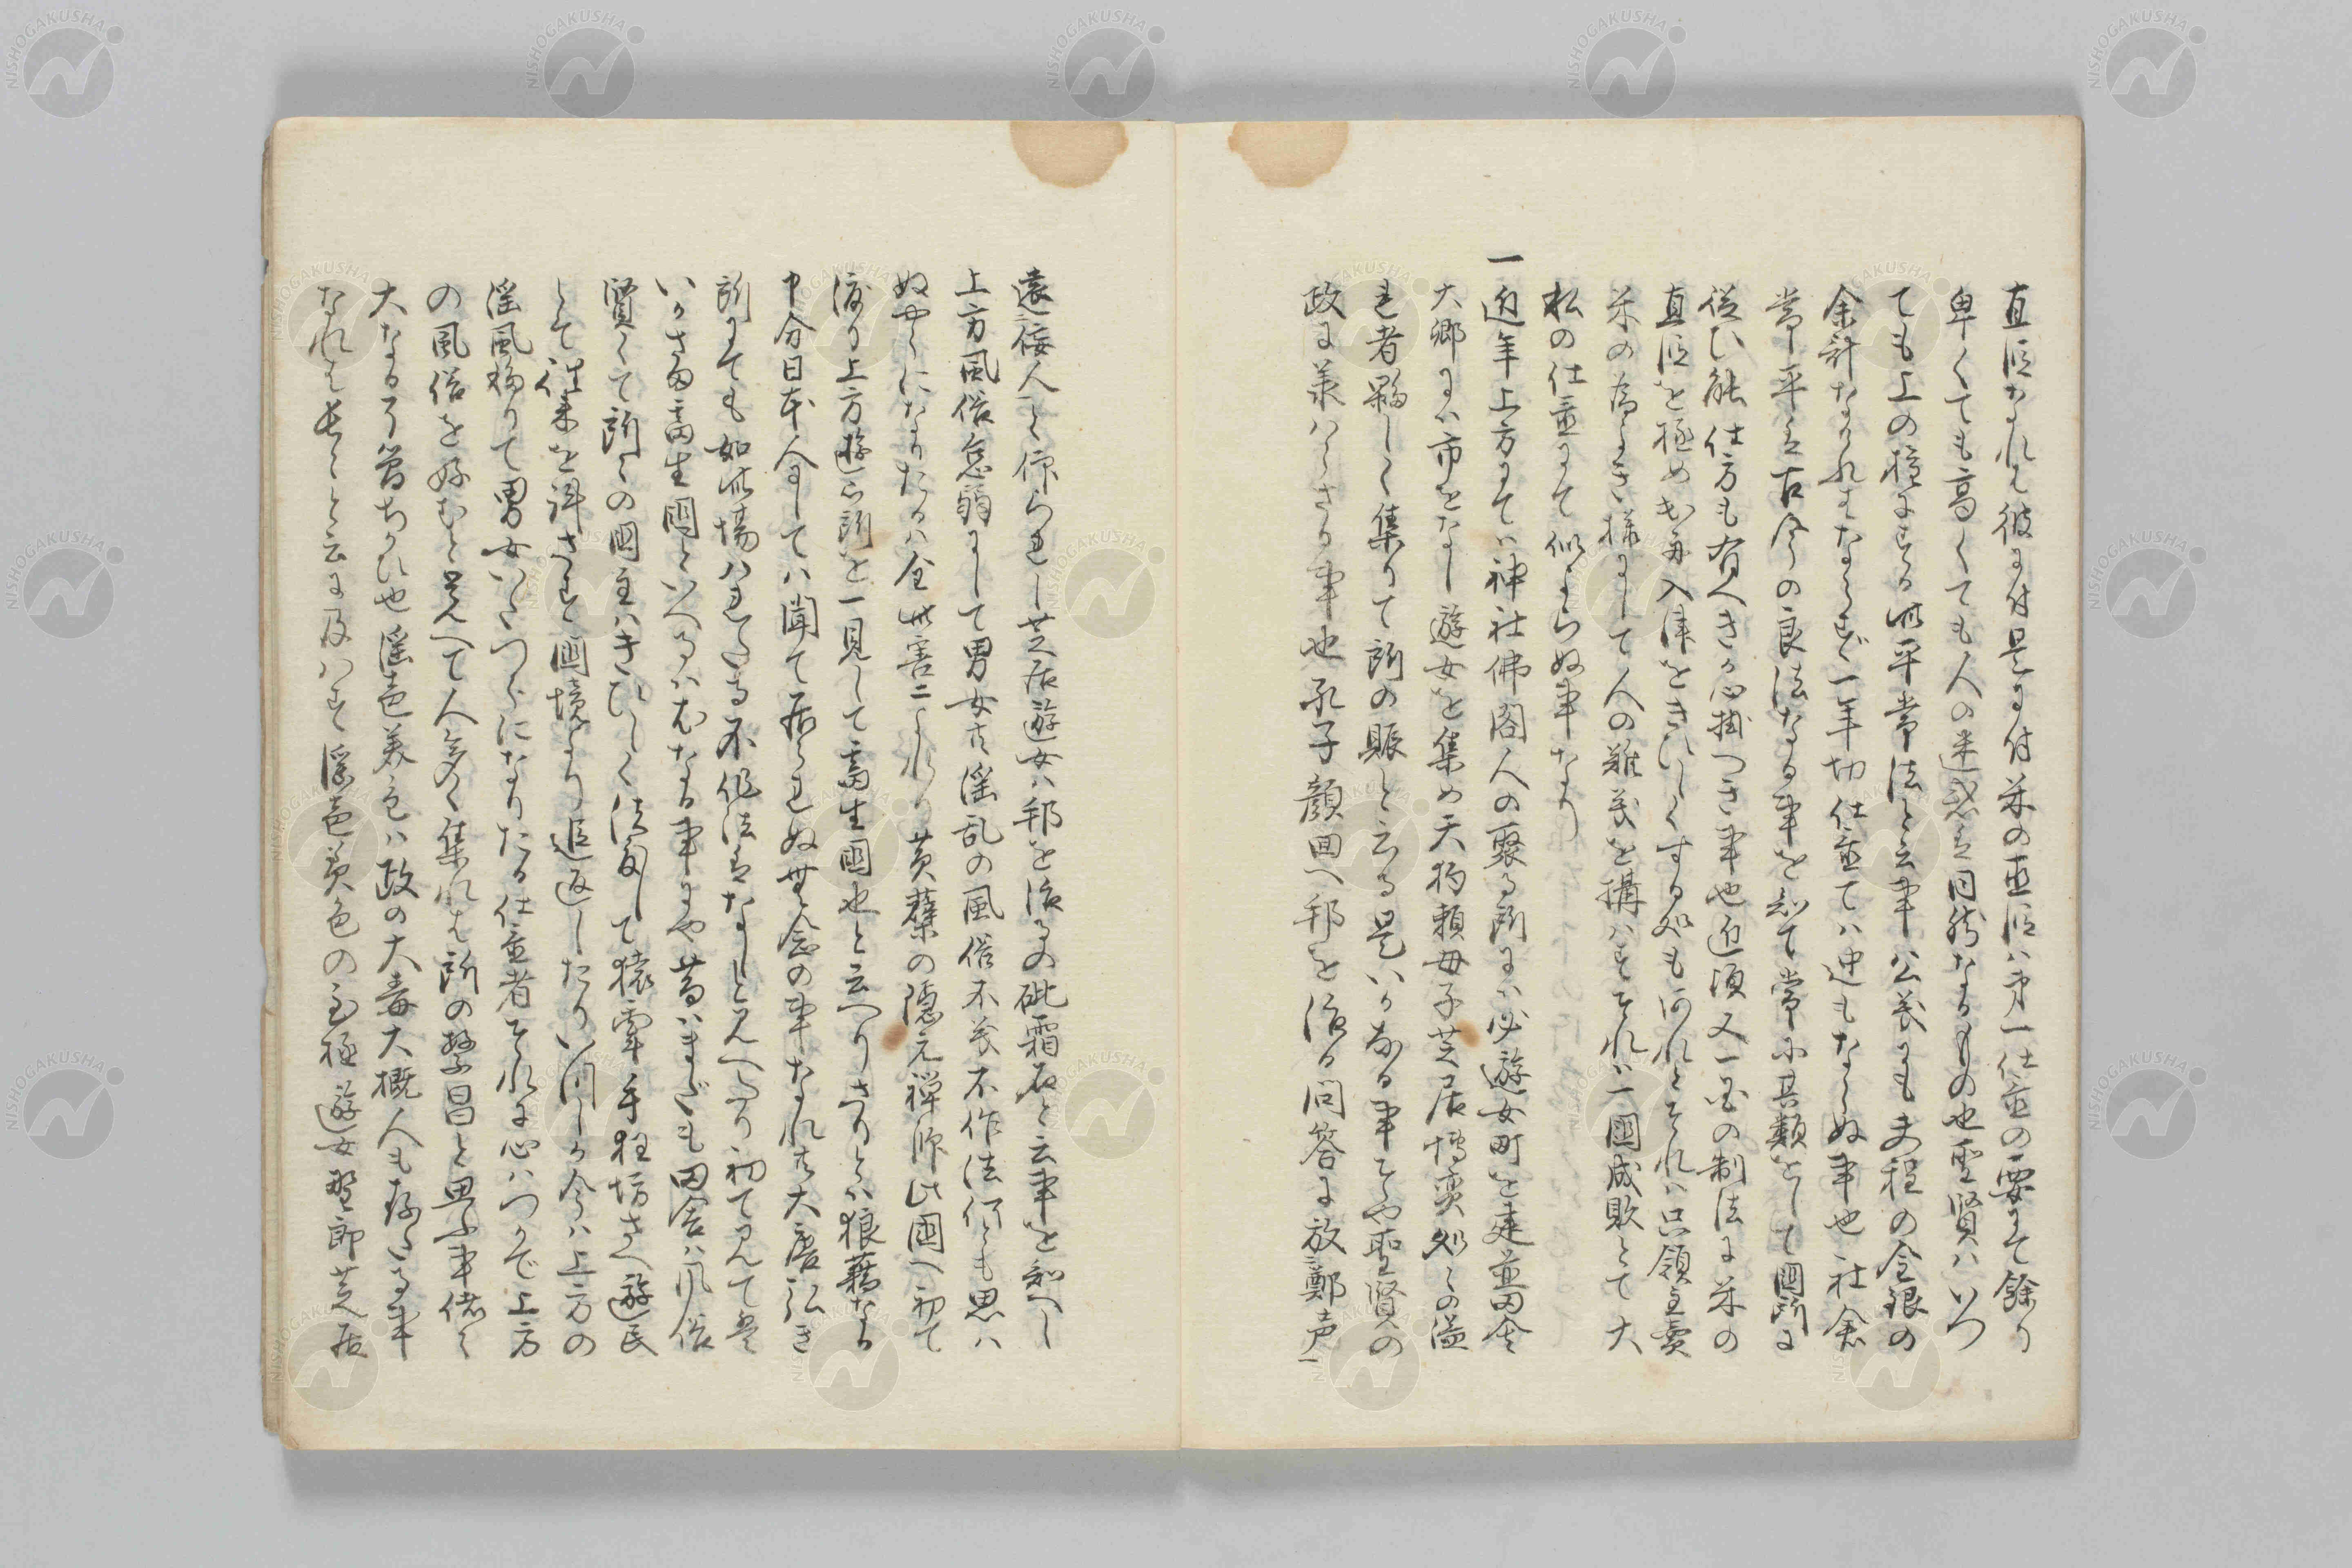 直段なれは彼に付是に付米の直段ハ第一仕置の要にて餘り
卑くても高くても人の迷惑は同然なるもの也聖賢ハいつ
ても上の稽にする此平常法と云事ハ公義にも夫程の金銀の
余計なけれはならず一年切仕置てハ迚もならぬ事也社倉
常平は古今の良法なる事を知て常に其類をして國所に
従ひ能仕方も有へきか心掛へき事也近頃又一国の制法に米の
直段を極め出舟入津をきひしくする処も何れとそれハ只領主賣
米の為よき様にして人の難義を搆ハすそれハ一國成敗とて大
私の仕置にて似よらぬ事なり
一近年上方にてハ神社佛閣人の聚る所にハ必遊女町を建並田舎
大郷にハ市をなし遊女を集め天狗頼母子芝居博奕処々の溢
れ者夥しく集りて所の賑と云る是いかなる事そや聖賢の
政に羕ハらさる事也孔子顔回へ邦を治る問答に放二鄭声一
遠二佞人一と仰られし芝居遊女ハ邦を治るの砒霜石と云事を知へし
上方風俗怠弱にして男女共淫乱の風俗不義不作法何とも思ハ
ぬやうになりたるハ全此害ニよれり黄蘗の隠元禅師此國へ初て
渡り上方遊所を一見して畜生國也と云へりさりとハ狼藉なる
申分日本人にしてハ聞て居られぬ無念の事なれ共大唐弘き
所にても如此場ハれたる不作法はなしと見へたり初て見て是
いかさま畜生國といへるハ尤なる事にや昔ハまだも田舎ハ風俗
賢くて所々の國主ハきひしく法度して猿牽手狂坊さへ遊民
とて往来を許さす國境より追返したりい間しか今ハ上方の
淫風移りて男女いたつらになりたる仕置者それに心ハつかで上方
の風俗を好むと見へて人多く集れは所の繁昌と思ふ事偖々
大なる了簡ちかひ也淫色美色ハ政の大毒大概人も存たる事
なれは長々と云に及ハす淫色美色の至極遊女野郎芝居